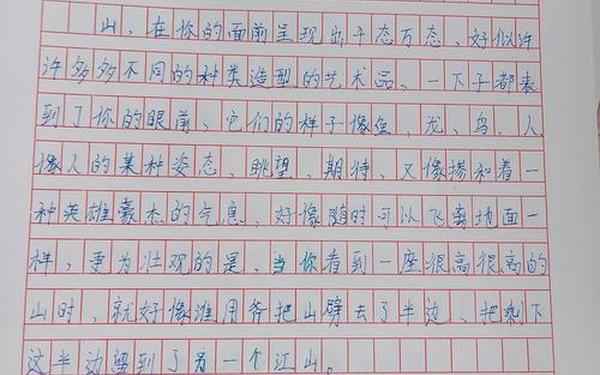 山，在你的面前呈现出千态万态，好似许
许多多不同的种类造型的艺术品，一下子都来
到了你的眼前，它们的样子像鱼，龙、鸟、人，
像人的某种姿态，眺望、期待，又像搀和着一
种英雄豪杰的气息，好像随时可以飞离地面一
样，更为壮观的是，当你看到一座很高很高的
山时，就好像谁用斧把山劈去了半边，把剩下
这半边留到了另一个江山。